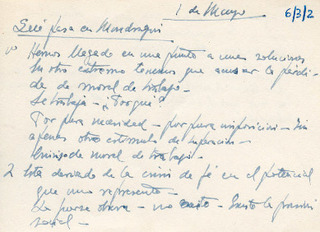 1 de Mayo 6/3/2
Qué pasa en Mondragon
1º Hemos llegado en un punto a unas soluciones
En otro extremo tenemos que acusar la pérdi-
da de moral de trabajo.
Se trabaja - ¿Por qué?
Por pura necesidad - por pura imposición - Sin
apenas otro estímulo de superación -
de moral de trabajo.
2 Esta deriva de la crisis de fé en el potencial
que uno representa -
La previsión
social -